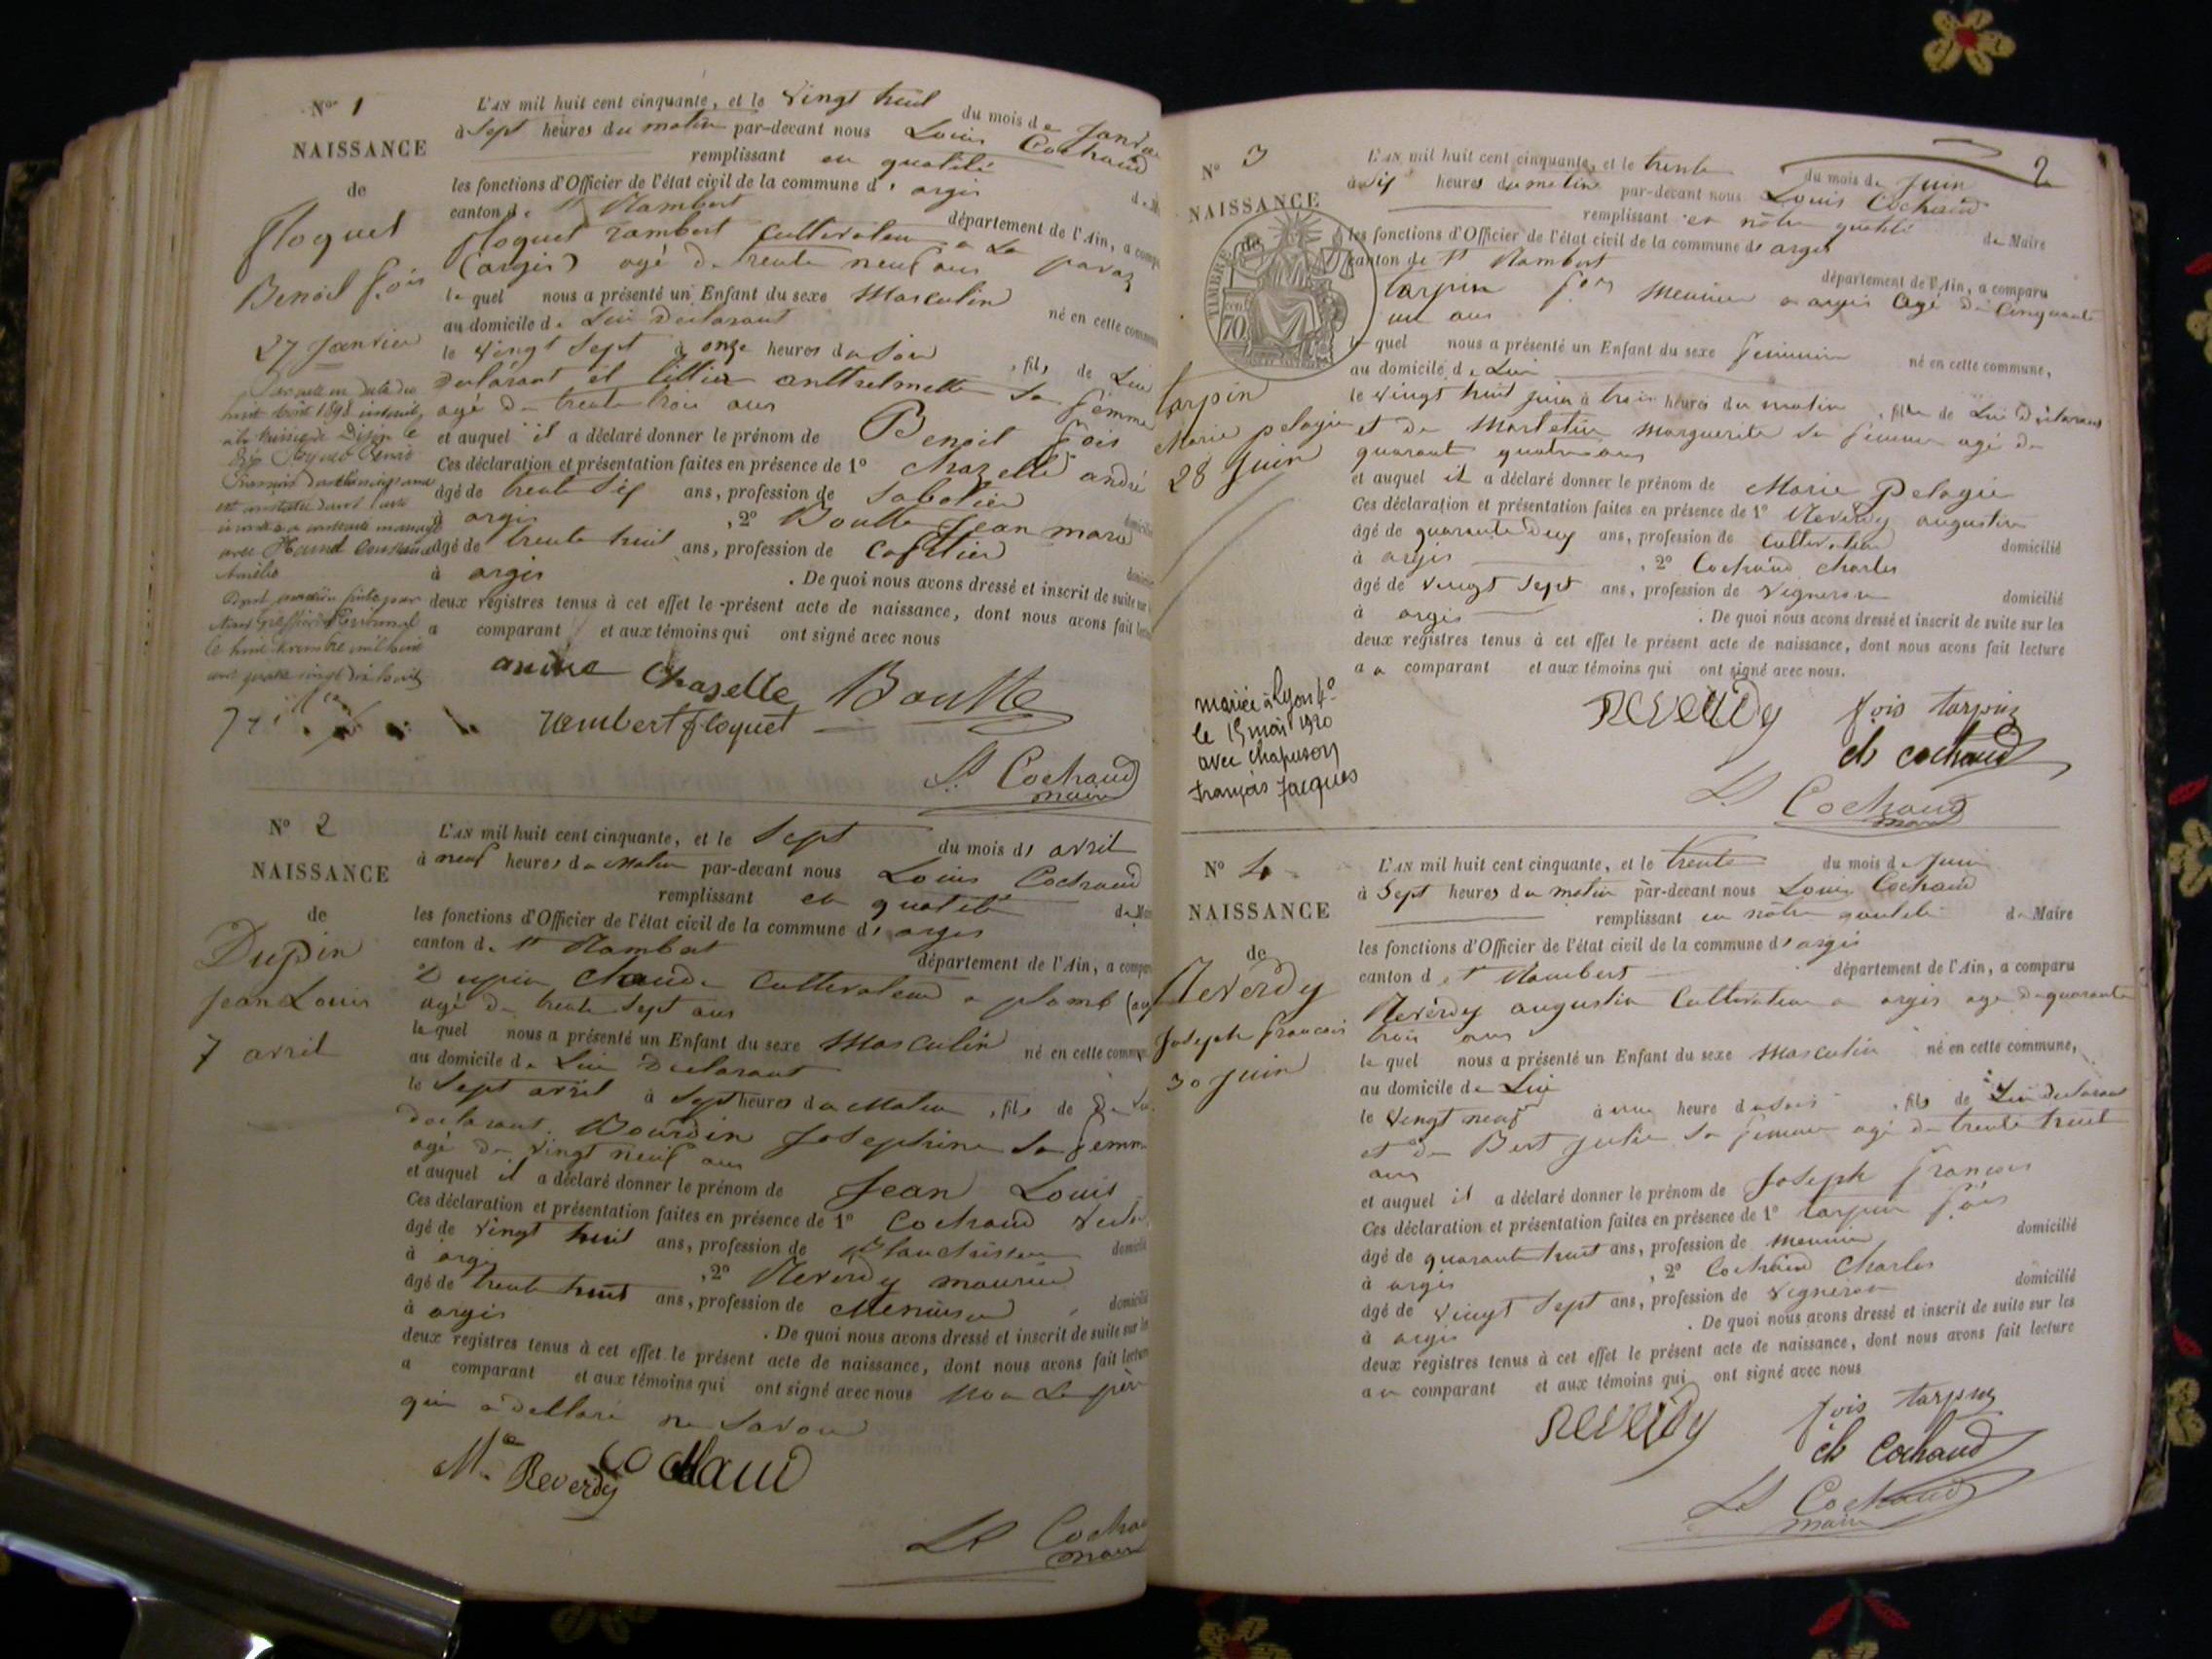 N° 1
NAISSANCE
de
floquet
Benoit f.ois
27 Janvier
L'AN mil huit cent cinquante, et le Vingt huit du mois de Janvier
à Sept heures du matin par-devant nous Louis Cochaud
remplissant en qualité
les fonctions d'Officier de l'état civil de la commune d' argis
canton de St Rambert département de l'Ain, a comp
floquet rambert Cultivateur a La
(argis) agé de trente neuf ans
le quel nous a présenté un Enfant du sexe Masculin né en cette commune
au domicile de Lui Declarant
le Vingt Sept à onze heures du Soir, fils de Lui
declarant et anthelmette Sa femme
agé de trente trois ans
et auquel il a déclaré donner le prénom de Benoit fois
Ces déclaration et présentation faites en présence de 1° Chazelle andré
âgé de trente Six ans, profession de Sabotier
à argis, 2° Boutte Jean marie
âgé de trente huit ans, profession de Cafetier
à argis. De quoi nous avons dressé et inscrit de suite sur
deux registres tenus à cet effet le présent acte de naissance, dont nous avons fait lecture
a comparant et aux témoins qui ont signé avec nous
andré Chazelle Boutte
rambert floquet
Ls Cochaud
maire
N° 2
NAISSANCE
de
Dupin
Jean Louis
7 avril
L'AN mil huit cent cinquante, et le Sept du mois d' avril
à neuf heures du Matin par-devant nous Louis Cochaud
remplissant en qualité de
les fonctions d'Officier de l'état civil de la commune d' argis
canton de St Rambert département de l'Ain, a comp
Dupin Claude Cultivateur a plomb
agé de trente Sept ans
le quel nous a présenté un Enfant du sexe Masculin né en cette commune
au domicile de Lui Declarant
le Sept avril à Sept heures du Matin, fils de
declarant. Bourdin Josephine Sa femme
agé de Vingt neuf ans
et auquel il a déclaré donner le prénom de Jean Louis
Ces déclaration et présentation faites en présence de 1° Cochaud
âgé de Vingt huit ans, profession de domicilié
à argis, 2° Reverdy maurice
âgé de trente huit ans, profession de Menuisier, domicilié
à argis. De quoi nous avons dressé et inscrit de suite sur
deux registres tenus à cet effet le présent acte de naissance, dont nous avons fait lecture
a comparant et aux témoins qui ont signé avec nous Non Le père
qui a dellaré ne Savoir
Mce Reverdy Cochaud
Ls Cochaud
maire
2
N° 3
NAISSANCE
de
TIMBRE
70
tarpin
Marie pelagie
28 Juin
mariée à Lyon 4e
le 15 mai 1920
avec Chapuson
françois Jacques
L'AN mil huit cent cinquante, et le trente du mois de Juin
à Six heures du matin par-devant nous Louis Cochaud
remplissant en nôtre qualité de Maire
les fonctions d'Officier de l'état civil de la commune de argis
canton de St Rambert département de l'Ain, a comparu
tarpin fois Meunier a argis agé de Cinquante
un ans
le quel nous a présenté un Enfant du sexe feminin né en cette commune,
au domicile de Lui
le Vingt huit juin à trois heures du matin, fille de Lui Déclarant
et de Marguerite Sa femme agé de
quarante quatre ans
et auquel il a déclaré donner le prénom de Marie Pelagie
Ces déclaration et présentation faites en présence de 1° Reverdy augustin
âgé de quarante Deux ans, profession de Cultivateur domicilié
à argis, 2° Cochaud Charles
âgé de Vingt Sept ans, profession de Vigneron domicilié
à argis. De quoi nous avons dressé et inscrit de suite sur les
deux registres tenus à cet effet le présent acte de naissance, dont nous avons fait lecture
au comparant et aux témoins qui ont signé avec nous.
Reverdy fois tarpin
ch cochaud
Ls Cochaud
maire
N° 4
NAISSANCE
de
Reverdy
Joseph francois
30 Juin
L'AN mil huit cent cinquante, et le trente du mois de Juin
à Sept heures du matin par-devant nous Louis Cochaud
remplissant en nôtre qualité de Maire
les fonctions d'Officier de l'état civil de la commune d' argis
canton de St Rambert département de l'Ain, a comparu
Reverdy augustin Cultivateur a argis age de quarante
trois ans
le quel nous a présenté un Enfant du sexe Masculin né en cette commune,
au domicile de Lui
le Vingt neuf à une heure du Soir, fils de Lui declarant
et de Bert Julie Sa femme agé de trente huit
ans
et auquel il a déclaré donner le prénom de Joseph francois
Ces déclaration et présentation faites en présence de 1° tarpin fois
âgé de quarante huit ans, profession de Meunier domicilié
à argis, 2° Cochaud Charles
âgé de Vingt Sept ans, profession de Vigneron domicilié
à argis. De quoi nous avons dressé et inscrit de suite sur les
deux registres tenus à cet effet le présent acte de naissance, dont nous avons fait lecture
au comparant et aux témoins qui ont signé avec nous
Reverdy fois tarpin
ch Cochaud
Ls Cochaud
maire